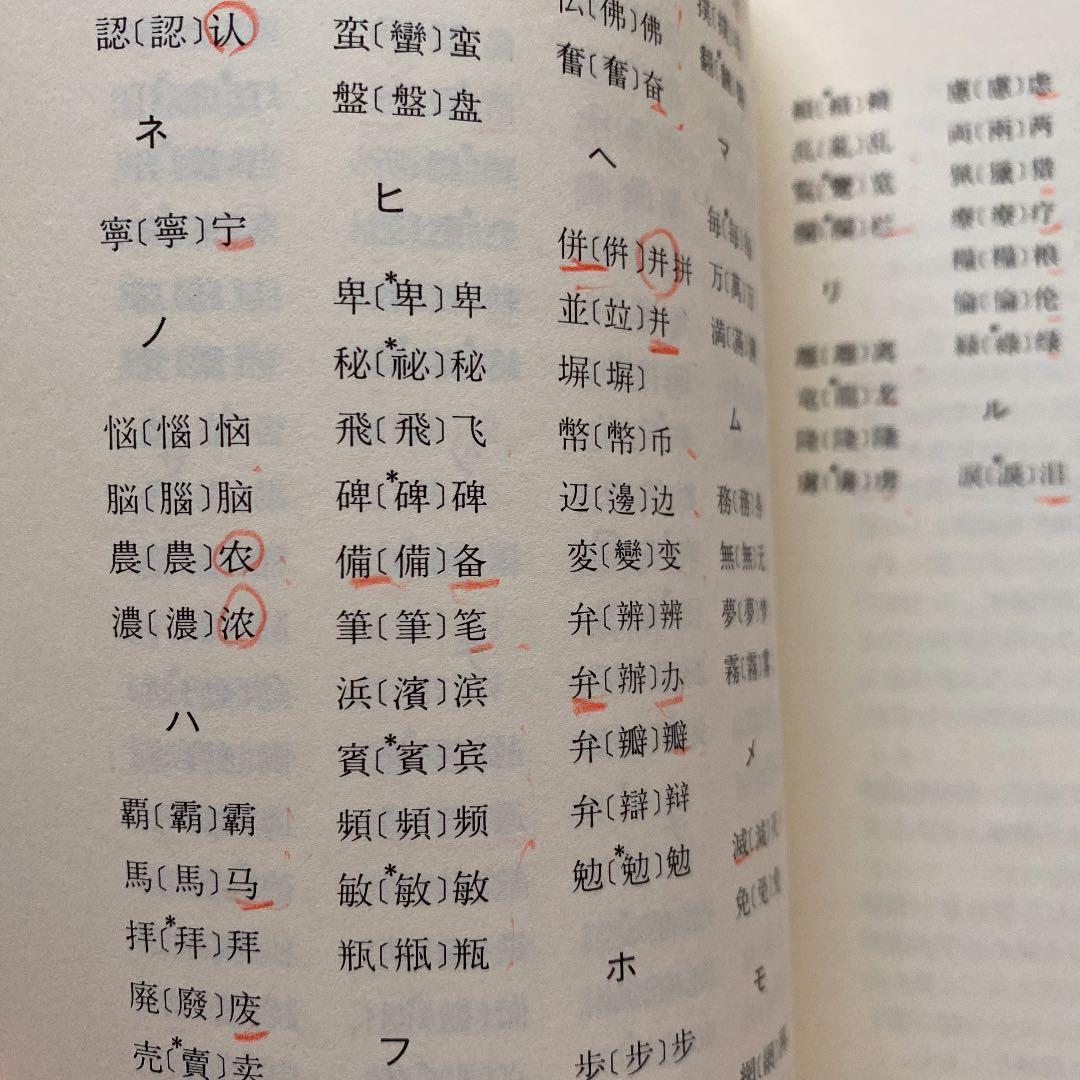 認〔認〕认
ネ
寧〔寧〕宁
ノ
悩〔惱〕恼
脳〔腦〕脑
農〔農〕农
濃〔濃〕浓
ハ
覇〔霸〕霸
馬〔馬〕马
拝〔*拜〕拜
廃〔廢〕废
売〔*賣〕卖
蛮〔蠻〕蛮
盤〔盤〕盘
ヒ
卑〔*卑〕卑
秘〔*祕〕秘
飛〔飛〕飞
碑〔*碑〕碑
備〔備〕备
筆〔筆〕笔
浜〔濱〕滨
賓〔*賓〕宾
頻〔頻〕频
敏〔*敏〕敏
瓶〔甁〕瓶
フ
仏〔佛〕佛
奮〔奮〕奋
ヘ
併〔倂〕并拼
並〔竝〕并
塀〔塀〕
幣〔幣〕币
辺〔邊〕边
変〔變〕变
弁〔辨〕辨
弁〔辦〕办
弁〔瓣〕瓣
弁〔辯〕辩
勉〔*勉〕勉
ホ
歩〔步〕步
マ
毎〔*每〕每
万〔萬〕万
満〔滿〕满
ム
務〔務〕务
無〔無〕无
夢〔夢〕梦
霧〔霧〕雾
メ
滅〔滅〕灭
免〔免〕免
モ
乱〔亂〕乱
覧〔*覽〕览
欄〔*欄〕栏
リ
離〔離〕离
竜〔*龍〕龙
隆〔隆〕隆
虜〔*虜〕虏
慮〔慮〕虑
両〔兩〕两
猟〔獵〕猎
療〔療〕疗
糧〔糧〕粮
倫〔倫〕伦
ル
涙〔*淚〕泪